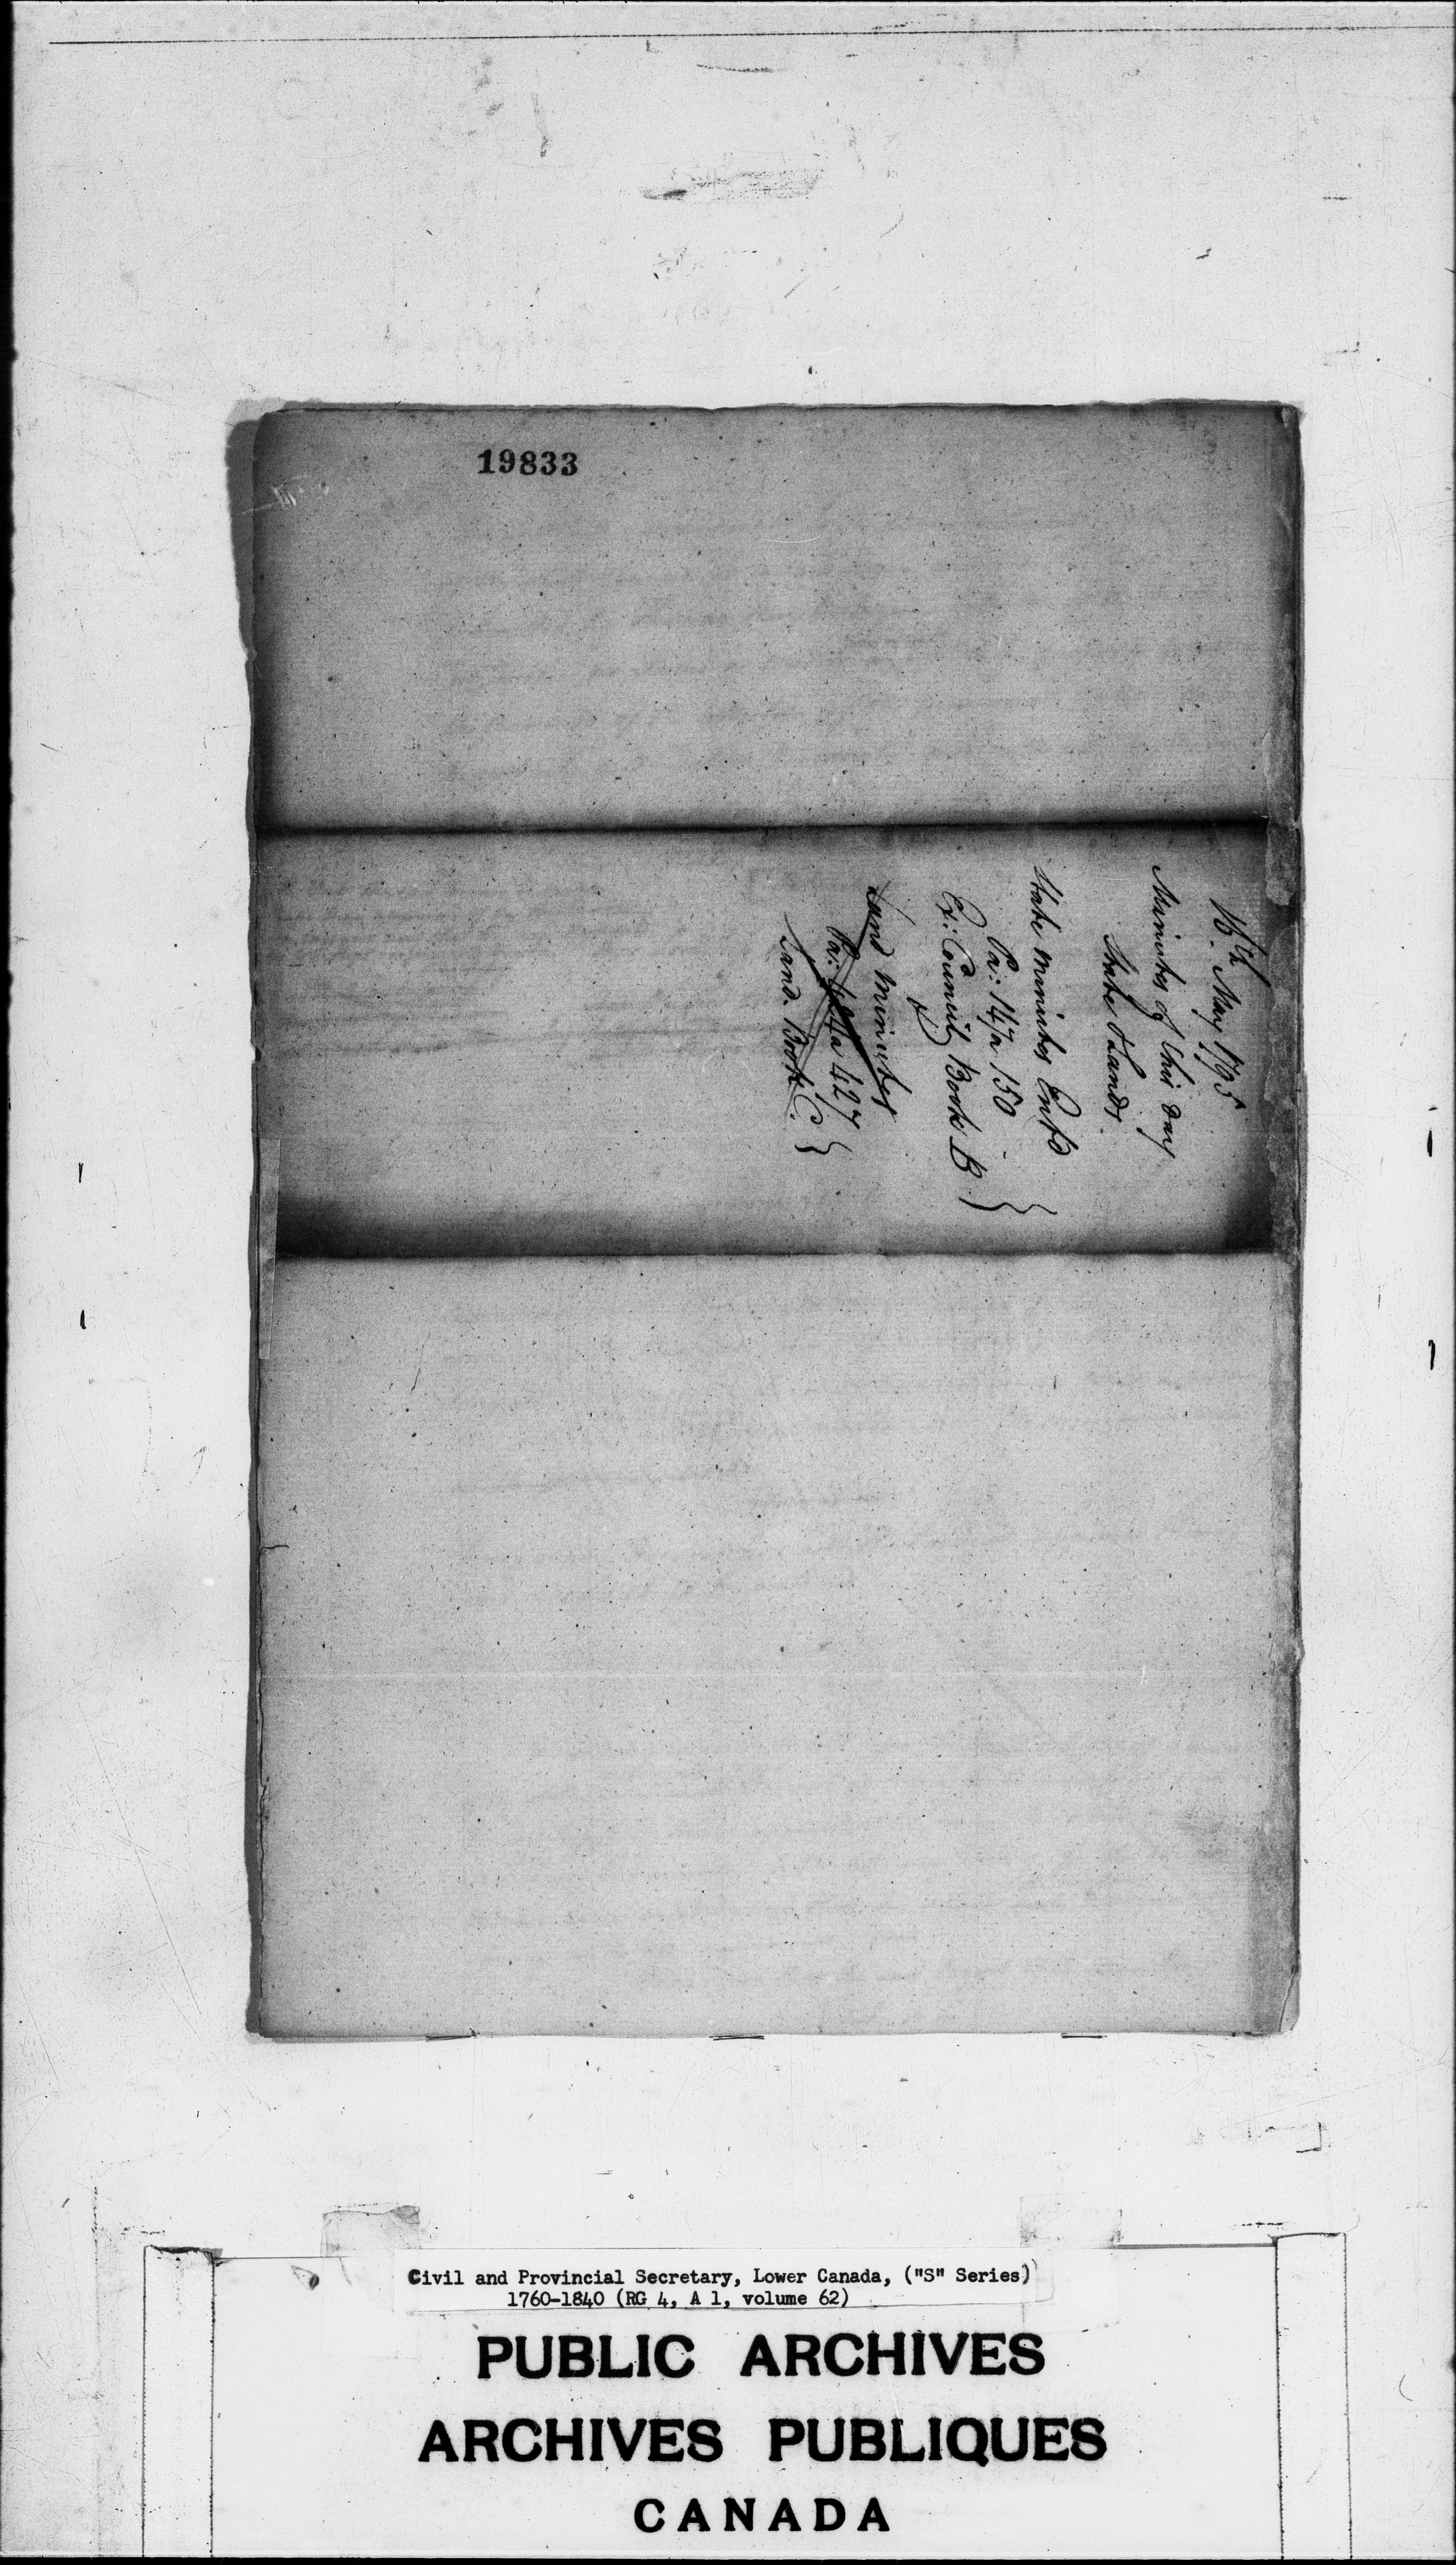 19833
16th. May 1795
Minutes of this day
State & Lands.
State minutes Entd
Pa: 147 a 150
Ex: Council Book B
Land minutes
Pa: 424 a 427
Land. Book C.
Civil and Provincial Secretary, Lower Canada, ("S" Series)
1760-1840 (RG 4, A 1, volume 62)
PUBLIC ARCHIVES
ARCHIVES PUBLIQUES
CANADA